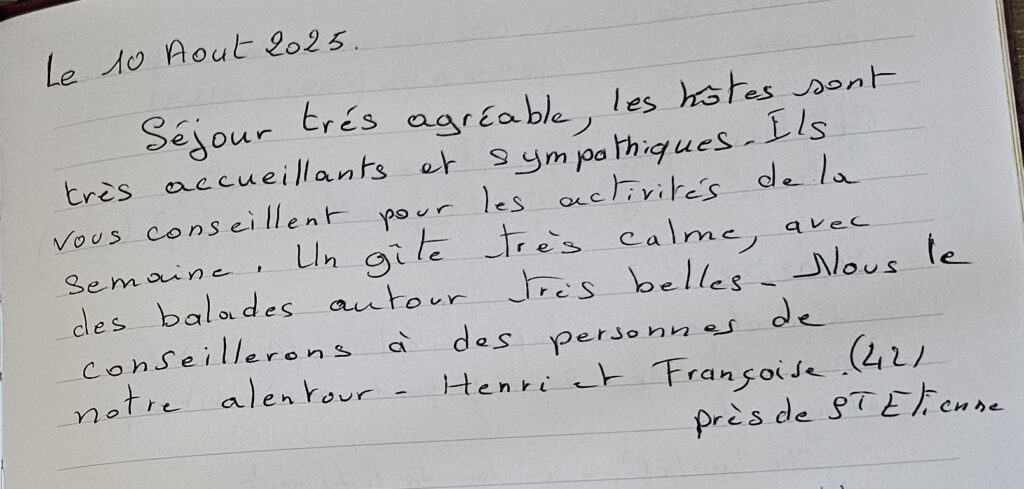 Le 10 Aout 2025.
Séjour trés agréable, les hôtes sont
très accueillants et sympathiques. Ils
vous conseillent pour les activités de la
semaine. Un gîte très calme, avec
des balades autour très belles - Nous le
conseillerons à des personnes de
notre alentour - Henri et Françoise. (42)
près de ST Etienne